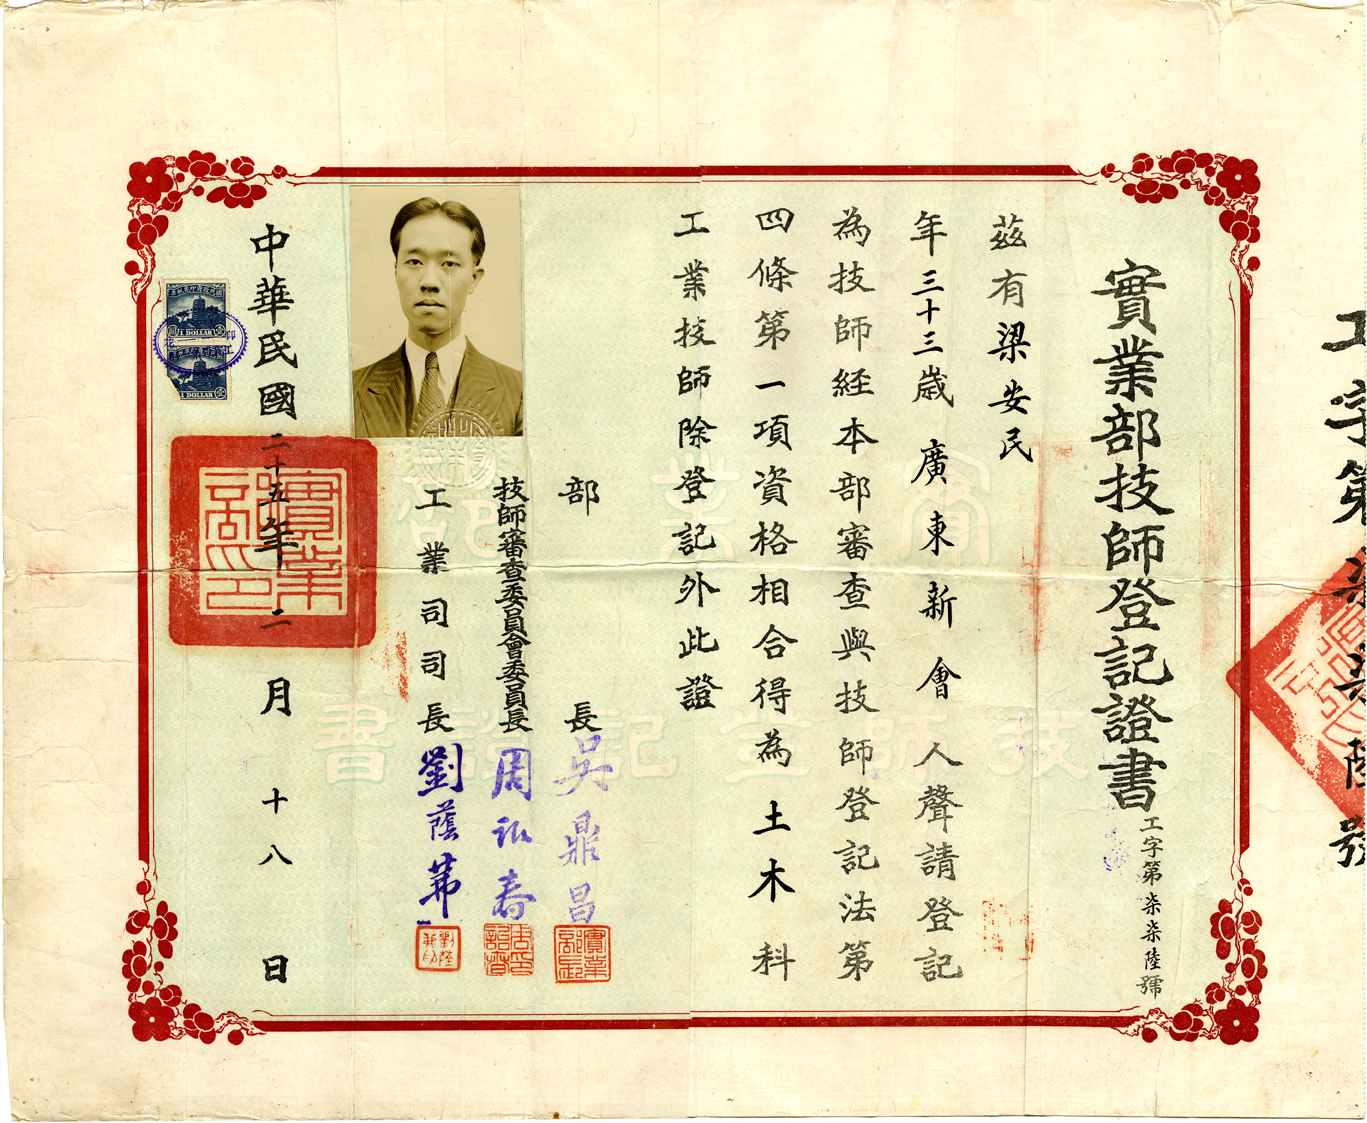 工字第柒柒陸號
實業部技師登記證書
工字第柒柒陸號
茲有梁安民
年三十三歲廣東新會人聲請登記
為技師經本部審查與技師登記法第
四條第一項資格相合得為土木科
工業技師除登記外此證
部長吳鼎昌
技師審查委員會委員長周詒春
工業司司長劉蔭茀
中華民國二十五年二月十八日
實業部技師登記證書
實業部印
1 DOLLAR
1 DOLLAR